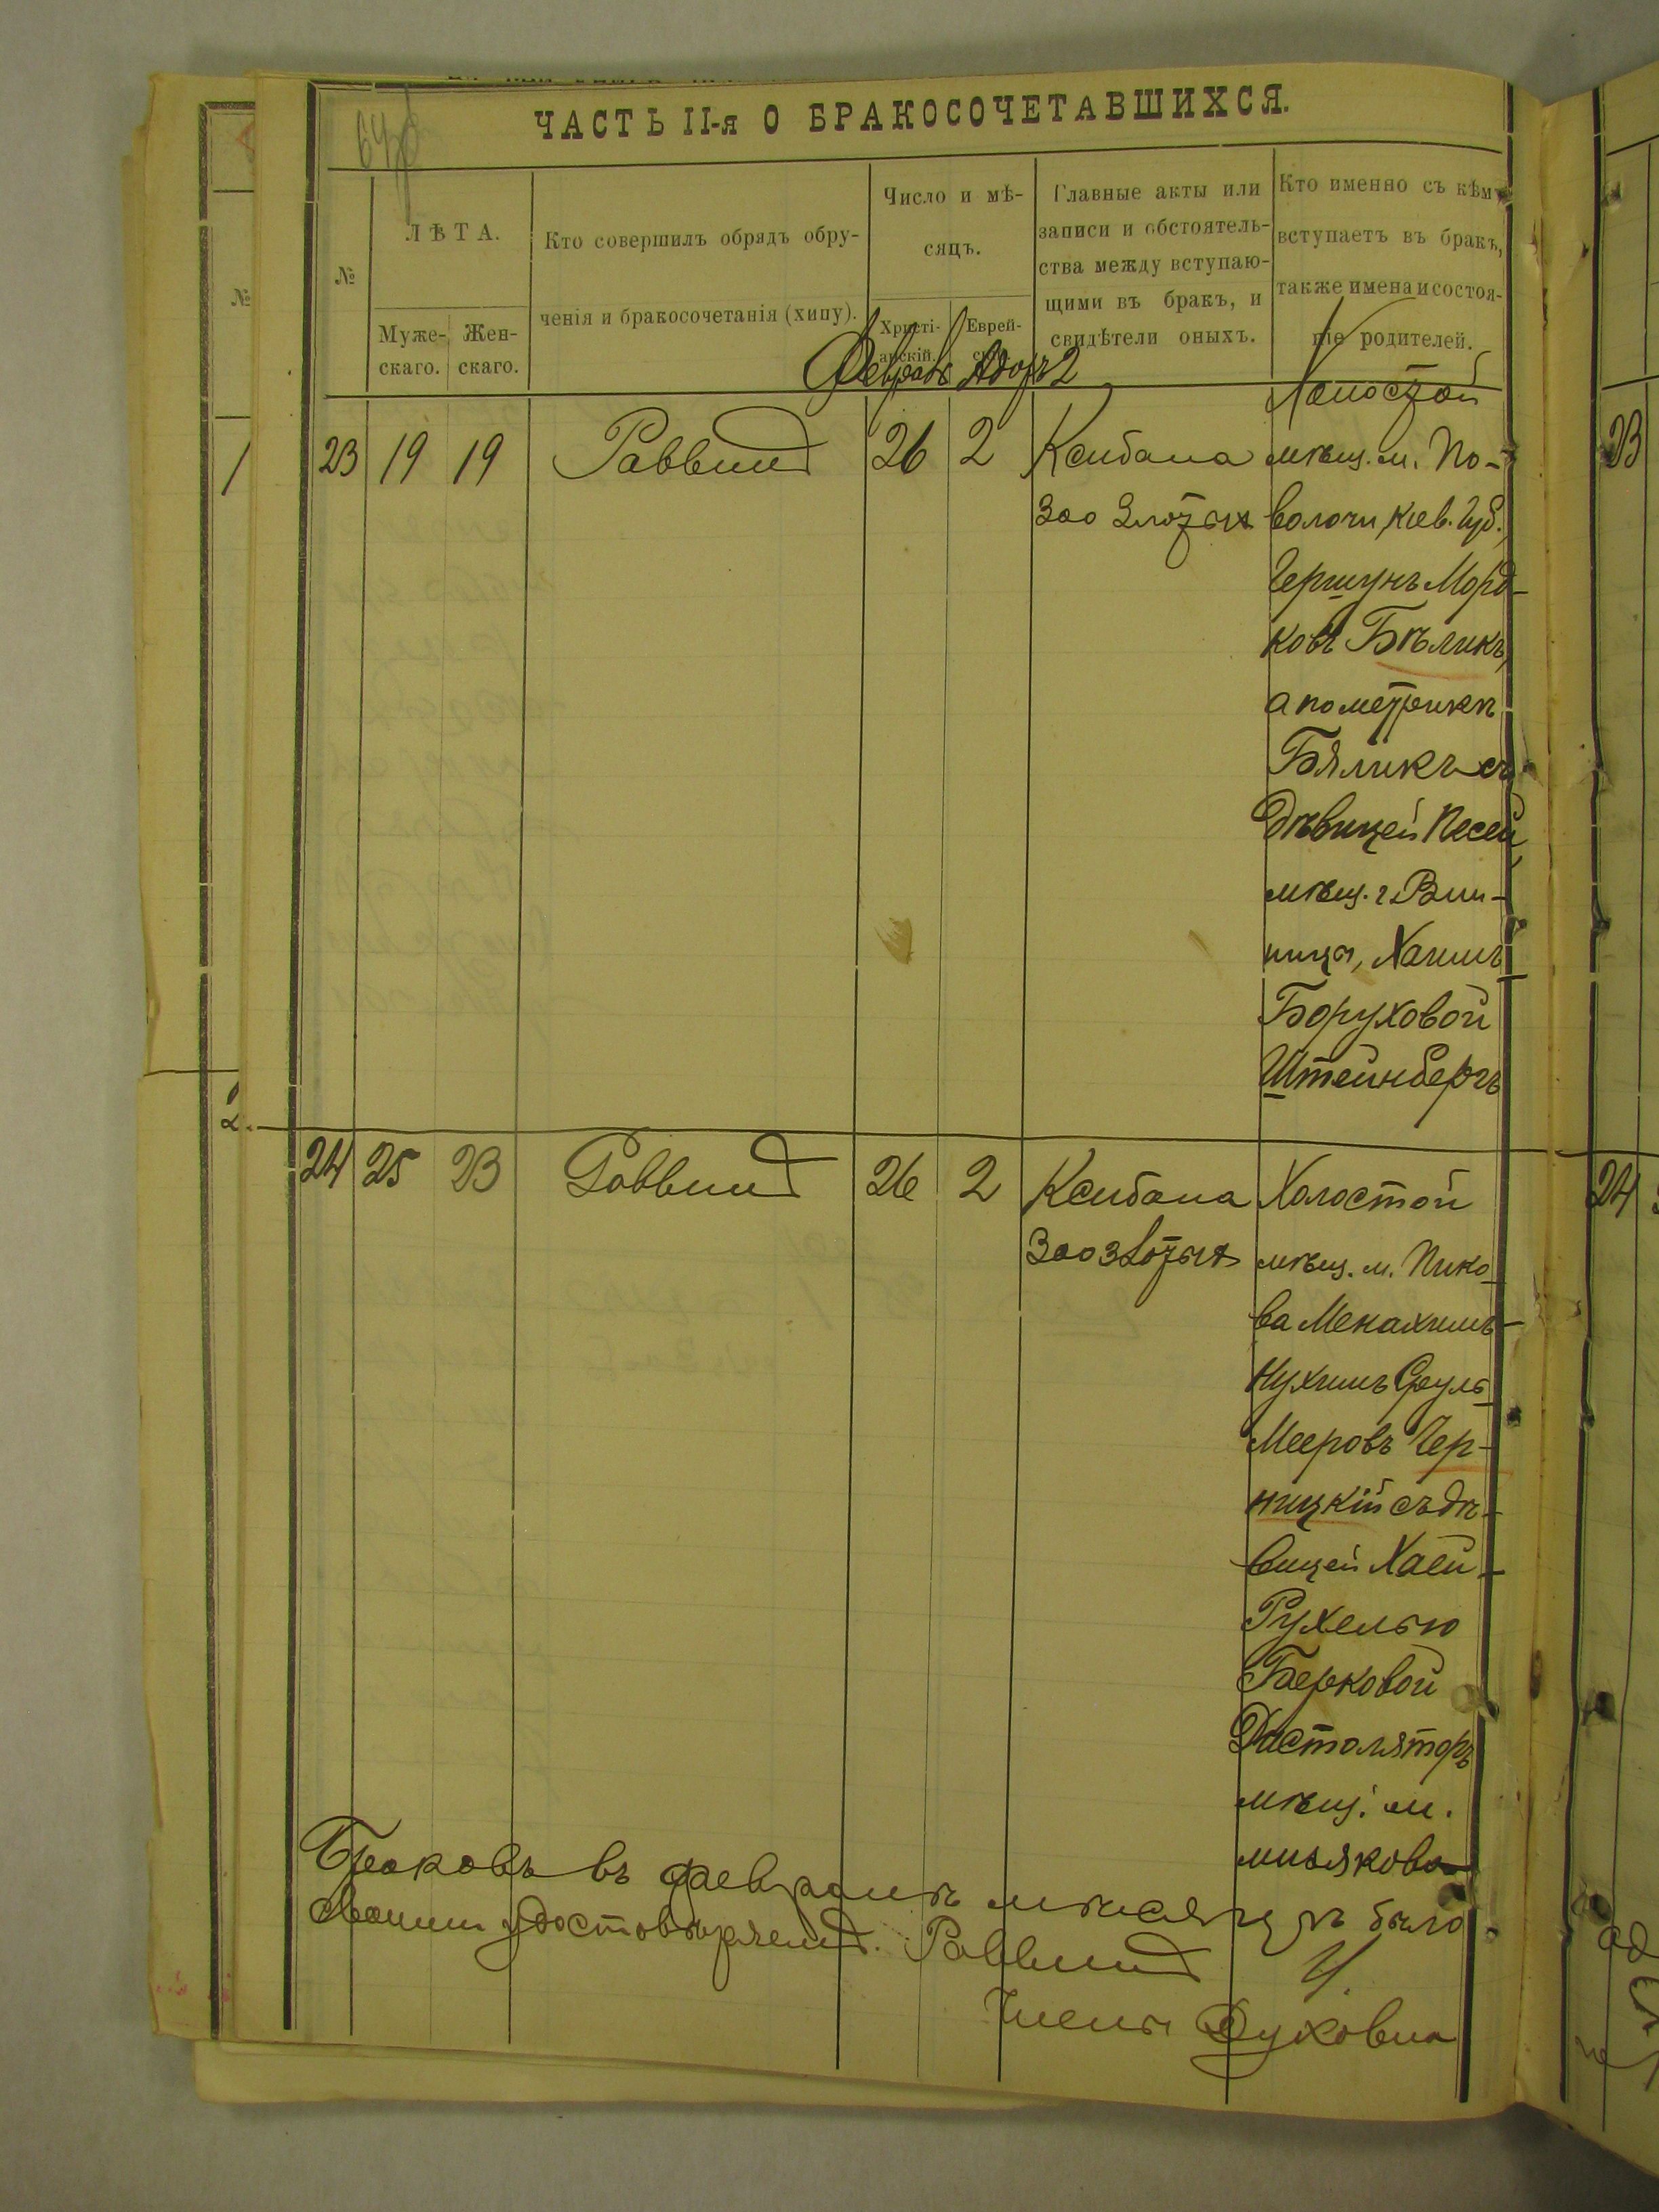 ЧАСТЬ II-я О БРАКОСОЧЕТАВШИХСЯ.
№
ЛѢТА.
Муже-
скаго.
Жен-
скаго.
Кто совершилъ обрядъ обру-
ченія и бракосочетанія (хипу).
Число и мѣ-
сяцъ.
Христі-
анскій.
Еврей-
скій.
Главные акты или
записи и обстоятель-
ства между вступаю-
щими въ бракъ, и
свидѣтели оныхъ.
Кто именно съ кѣмъ
вступаетъ въ бракъ,
также имена и состоя-
ніе родителей.
Февраль Адоръ 2
23 19 19 Раввинъ 26 2
Ксибана
300 злотыхъ
Холостой
мѣщ. м. По-
волочи, Кіев. Губ.,
Гершунъ Морд-
ковъ Бѣликъ,
а по метрикѣ
Бяликъ съ
дѣвицей Песей,
мѣщ. г. Вин-
ницы, Хаимъ
Боруховой
Штейнбергъ
24 25 23 Раввинъ 26 2
Ксибана
300 злотыхъ
Холостой
мѣщ. м. Пико-
ва Менахимъ-
Нухимъ Сруль-
Мееровъ Чер-
ницкій съ дѣ-
вицей Хаей-
Рухелью
Берковой
Дистоляторъ
мѣщ. м.
Мизякова
Браковъ въ февралѣ мѣсяцѣ было
удостовѣряемъ. Раввинъ
Члены Духовна